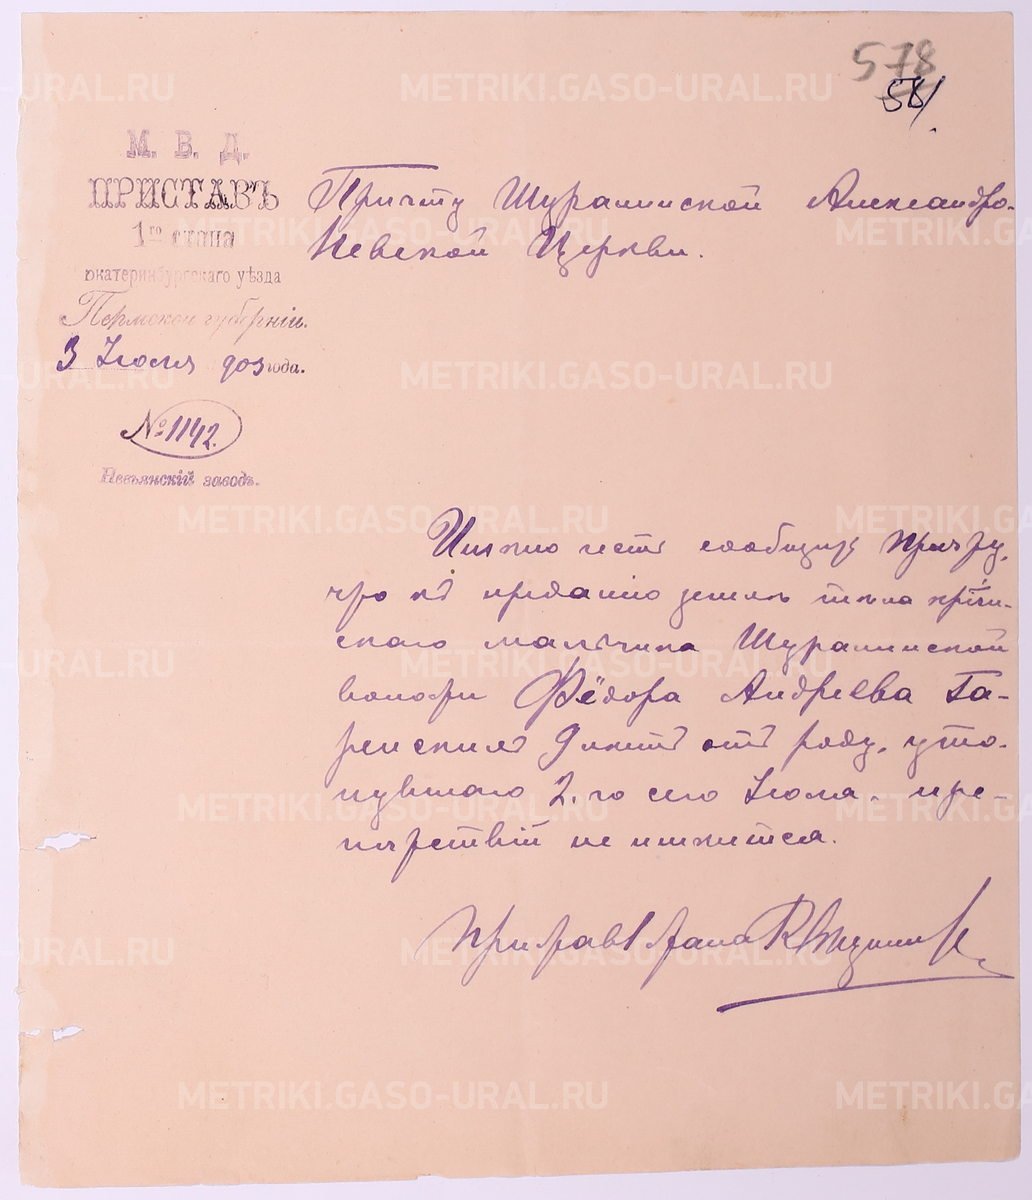 578
581.
М. В. Д.
ПРИСТАВЪ
1го стана
Екатеринбургскаго уѣзда
Пермской губерніи.
3 Іюля 903 года.
№ 1142.
Невьянскій заводъ.
Причту Шуралинской Александро-
Невской Церкви.
Имѣю честь сообщить Причту,
что къ преданію землѣ тѣла крѣстьян-
скаго мальчика Шуралинской
волости Фёдора Андреева Га-
9 лѣтъ отъ роду, уто-
нувшаго 2.го сего Іюля, пре-
пятствій не имѣется.
Приставъ 1 стана
METRIKI.GASO-URAL.RU